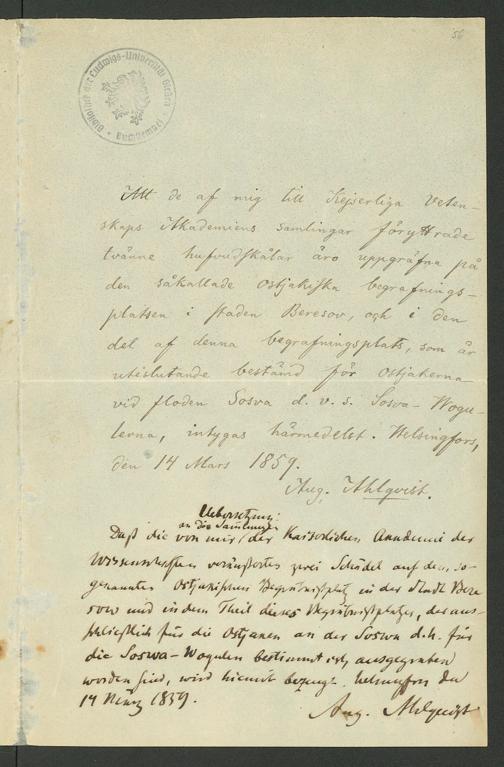 56
Bibliothek der Ludwigs-Universität Gießen
Att de af mig till Kejserliga Veten-
skaps Akademiens samlingar föryttrade
tvänne hufvudskålar äro uppgräfna på
den såkallade ostjakiska begrafnings-
platsen i staden Beresov, och i den
del af denna begrafningsplats, som är
uteslutande bestämd för ostjakerna
vid floden Sosva d. v. s. Sosva-Wogu-
lerna, intygas härmedelst. Helsingfors,
den 14 Mars 1859.
Aug. Ahlqvist.
Uebersetzung:
an die Sammlungen
Daß die von mir der Kaiserlichen Akademie der
Wissenschaften veräußerten zwei Schädel auf dem so-
genannten Ostjakischen Begräbnißplatz in der Stadt Bere
sow und in dem Theil dieses Begräbnißplatzes, der aus-
schließlich für die Ostjaken an der Soswa d.h. für
die Soswa-Wogulen bestimmt ist, ausgegraben
worden sind, wird hiemit bezeugt. Helsingfors den
14 März 1859.
Aug. Ahlqvist